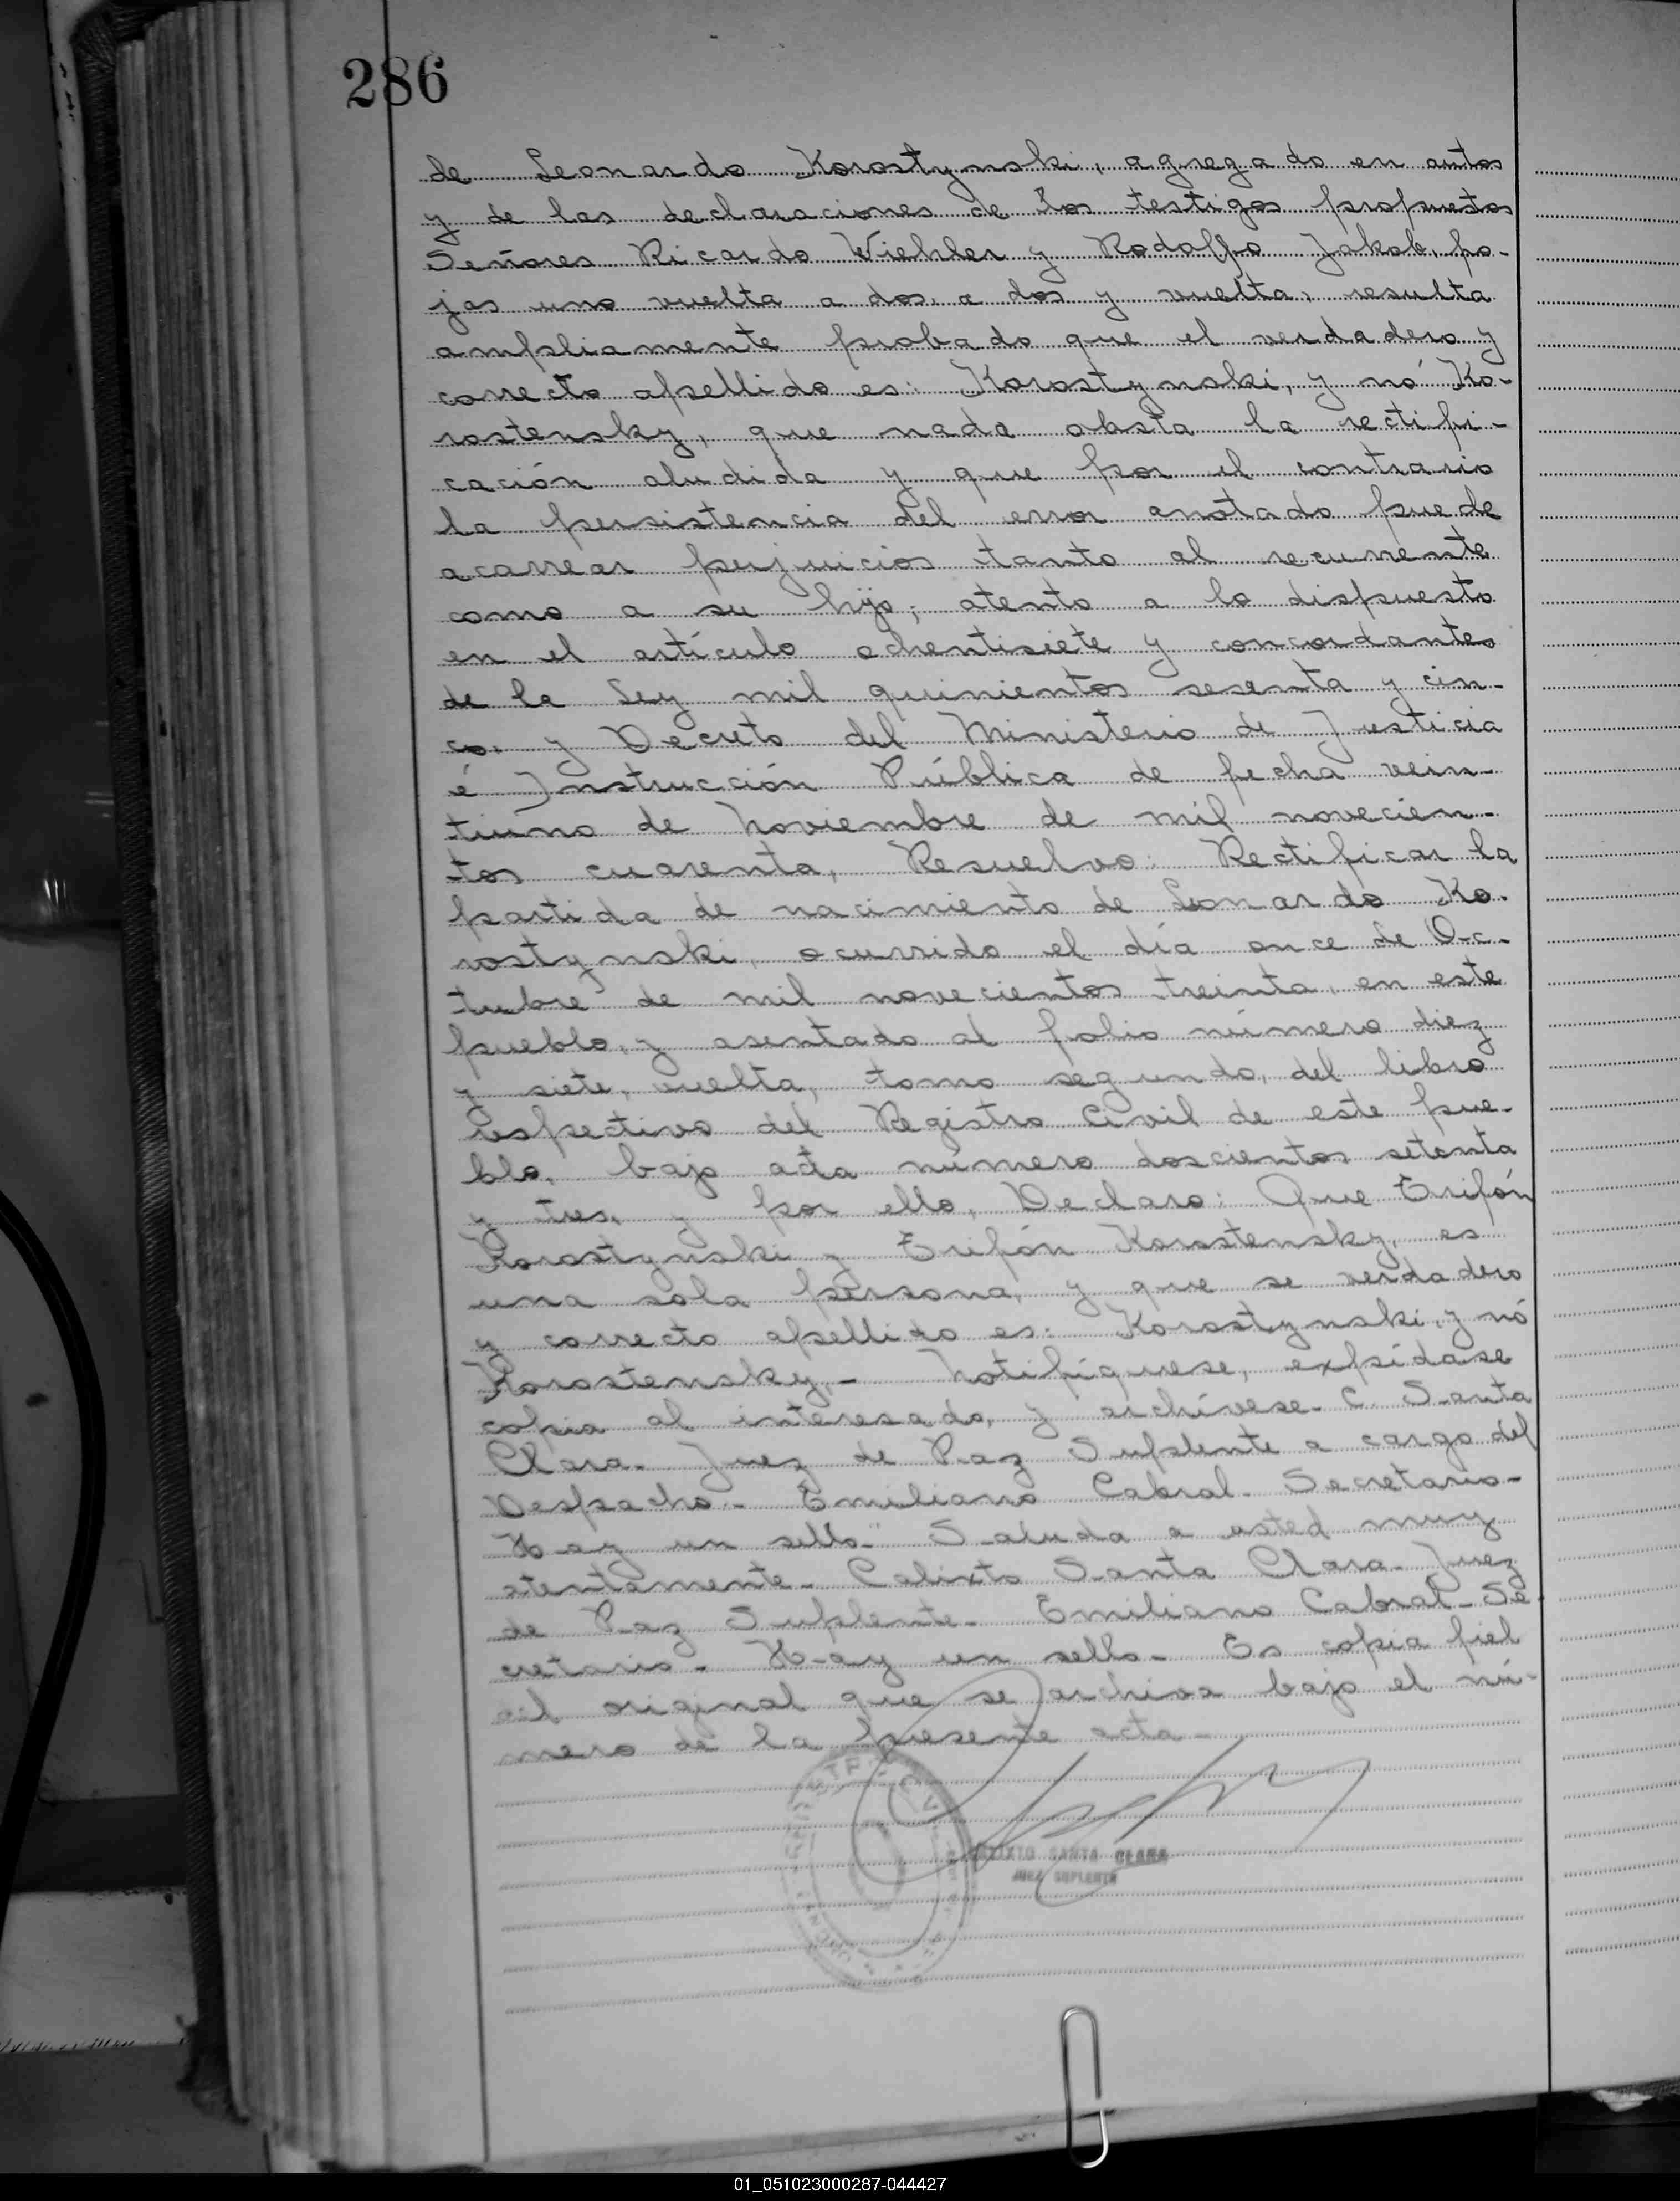 286
de Leonardo Korostynski, agregado en autos
y de las declaraciones de los testigos propuestos
Señores Ricardo Wiehler y Rodolfo Jakob, fo-
jas uno vuelta a dos, a dos y vuelta, resulta
ampliamente probado que el verdadero y
correcto apellido es: Korostynski, y nó Ko-
rostensky, que nada obsta la rectifi-
cación aludida y que por el contrario
la persistencia del error anotado puede
acarrear perjuicios tanto al recurrente
como a su hijo; atento a lo dispuesto
en el artículo ochentisiete y concordantes
de la Ley mil quinientos sesenta y cin-
co. y Decreto del Ministerio de Justicia
é Instrucción Pública de fecha vein-
tiuno de Noviembre de mil novecien-
tos cuarenta, Resuelvo: Rectificar la
partida de nacimiento de Leonardo Ko-
rostynski, ocurrido el día once de Oc-
tubre de mil novecientos treinta, en este
pueblo, y asentado al folio número diez
y siete, vuelta, tomo segundo, del libro
respectivo del Registro Civil de este pue-
blo, bajo acta número doscientos setenta
y tres, y por ello, Declaro: Que Trifón
Korostynski y Trifón Korostensky, es
una sola persona, y que se verdadero
y correcto apellido es: Korostynski, y nó
Korostensky,- Notifíquese, expídase
copia al interesado, y archívese. C. Santa
Clara. Juez de Paz Suplente a cargo del
Despacho - Emiliano Cabral. Secretario-
Hay un sello." Saluda a usted muy
atentamente. Calixto Santa Clara. Juez
de Paz Suplente. Emiliano Cabral - Se-
cretario. Hay un sello. Es copia fiel
del original que se archiva bajo el nú-
mero de la presente acta-
CALIXTO SANTA CLARA
JUEZ SUPLENTE
01_051023000287-044427